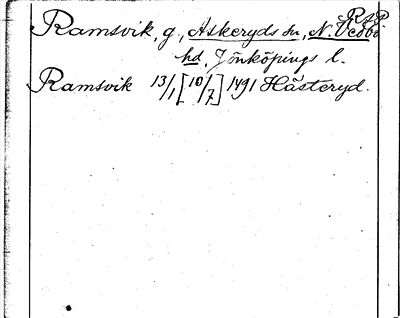 RAP.
Ramsvik, g., Askeryds sn, N. Vedbo
hd. Jönköpings l.
Ramsvik 13/1 [10/7] 1491 Hästeryd.